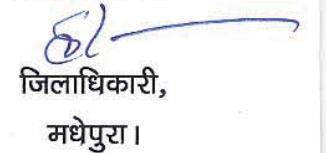 जिलाधिकारी,
मधेपुरा।